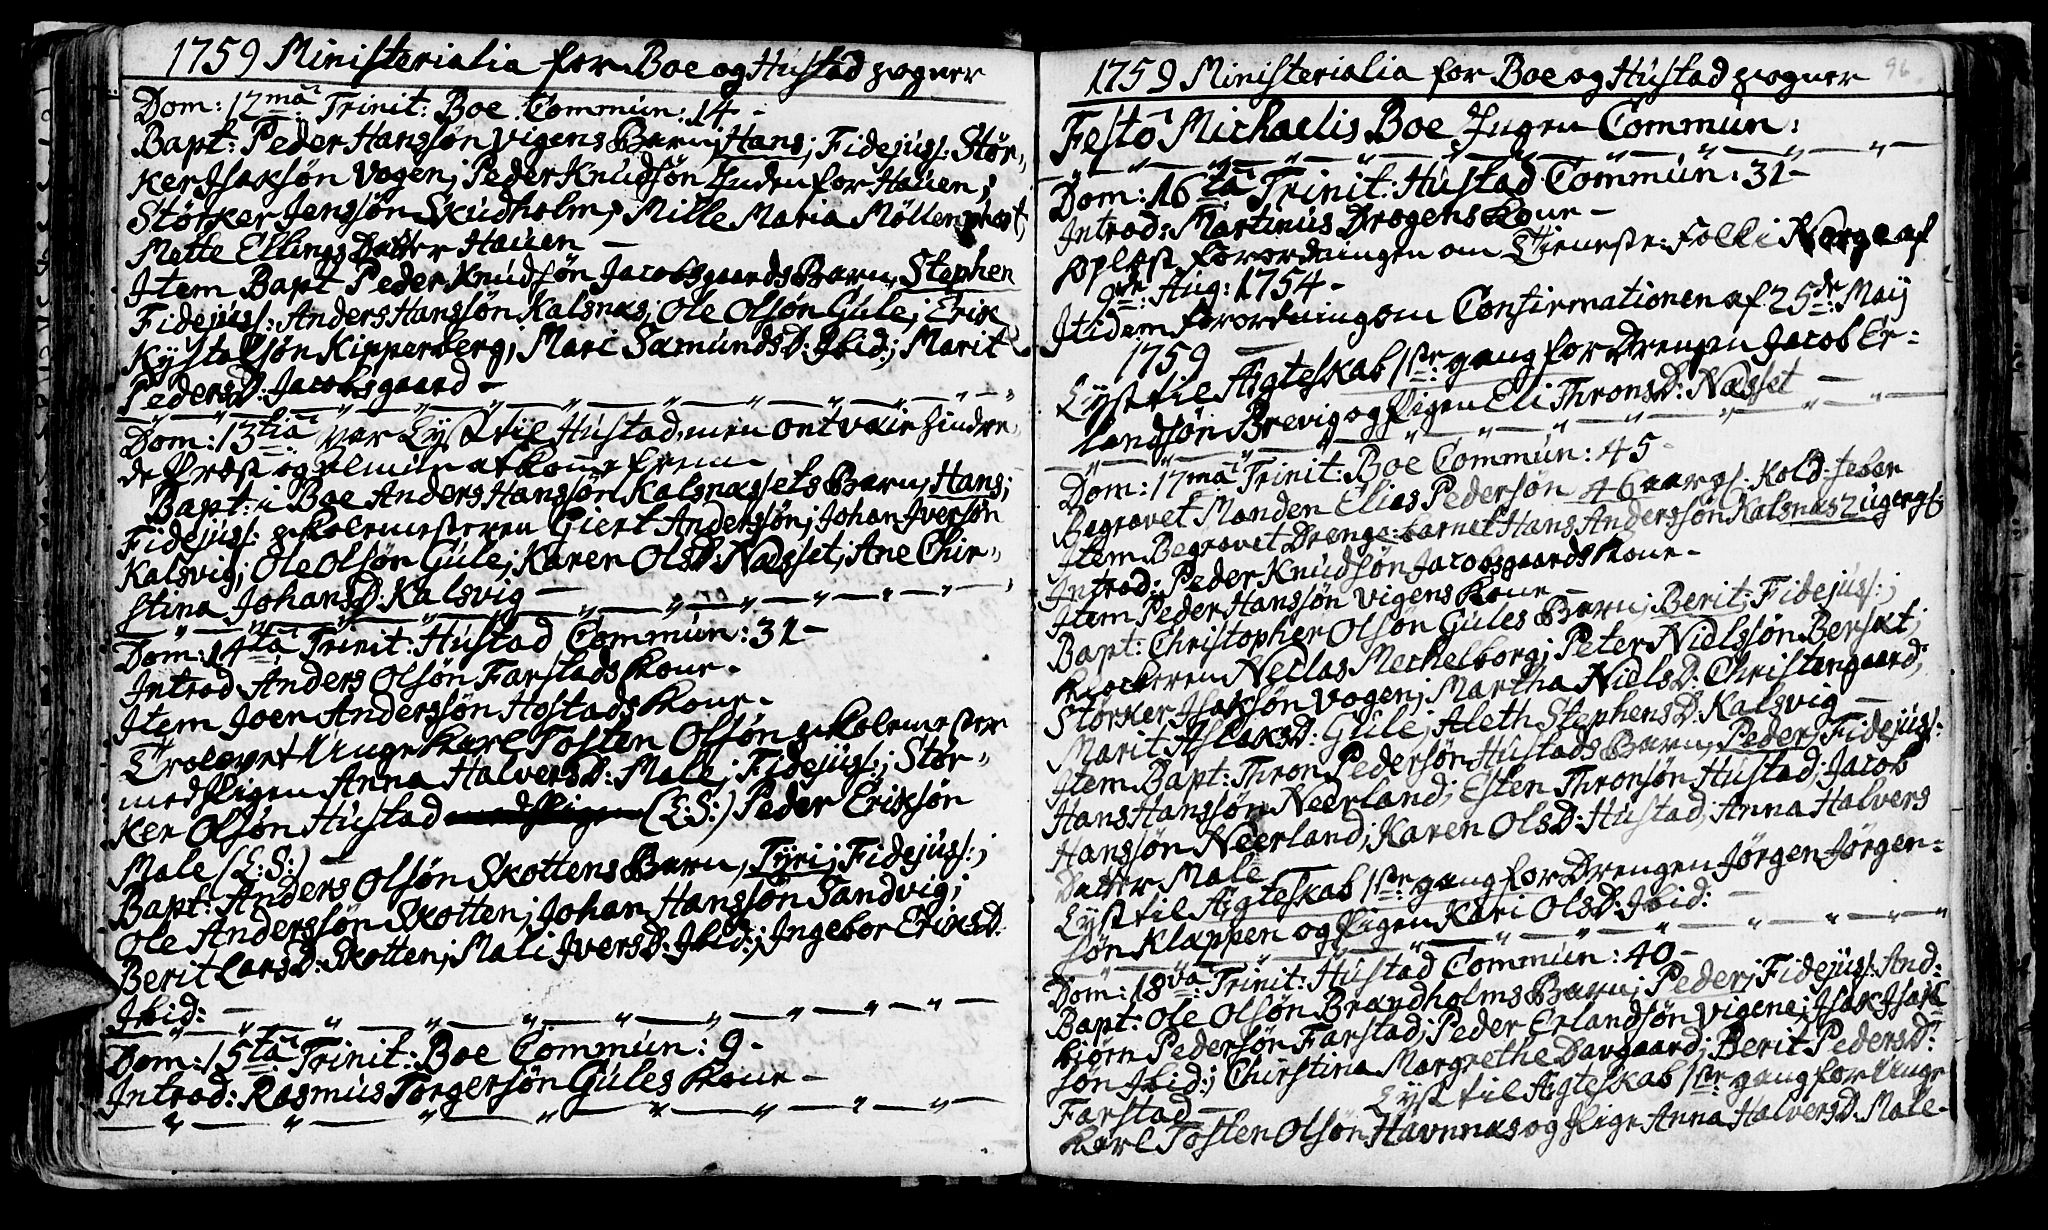 1759 Ministerialia for Boe og Hùstad sogner
Dom: 12mâ Trinit: Boe Commùn: 14 -
Bapt: Peder Hansøn Vigens Barn, Hans; Fidejùs: Stør-
Ker Isaksøn Vogen; Peder Knùdsøn Inden for Haùen;
Størker Jenssøn Skùdholm; Mille Maria Möllenphort;
Mette Ellings Datter Haùen -
Item Bapt Peder Knùdsøn Jacobsgaards Barn, Stephen
Fidejùs: Anders Hanssøn Kalsnæs; Ole Olsøn Gùle; Erik
Kÿstelsøn Kipperberg; Mari Samùnds D: Ibid; Marit
Peders D: Jacobsgaard -
Dom: 13tiâ var Lÿst til Hùstad, men ont vair hindre-
de Præst og Almùe at kome frem
Bapt: i Boe Anders Hanssøn Kalsnæssets Barn, Hans;
Fidejùs: skolemesteren Giert Anderssøn; Johan Iversøn
Kalsvig; Ole Olsøn Gùle; Karen Ols D: Næsset; Ane Chir-
stina Johans D: Kalsvig -
Dom: 14tâ Trinit: Hùstad Commùn: 31 -
Introd Anders Olsøn Farstads Kone -
Item Joen Anderssøn Hostads Kone -
Trolovet Ùnge Karl Tosten Olsøn skolemester
med Pigen Anna Halvers D: Male; Fidejùs:; Stør-
Ker Olsøn Hùstad (L:S:) Peder Eriksøn
Male (L:S:) -
Bapt: Anders Olsøn Skottens Barn, Tÿri; Fidejùs:;
Ole Anderssøn Skotten; Johan Hanssøn Sandvig;
Berit Lars D: Skotten; Mali Ivers D: Ibid:; Ingebor Eriks D:
Ibid: -
Dom: 15tâ Trinit: Boe Commùn: 9 -
Introd: Rasmùs Torgersøn Gùles Kone -
96
1759 Ministerialia for Boe og Hùstad sogner
Festo Michaelis Boe Ingen Commùn:
Dom: 16tâ Trinit: Hùstad Commùn: 31 -
Introd: Martinùs Drogens Kone -
Oplæst forordningen om Tieneste-folk i Norge af
9de: Aug: 1754 -
Itidem forordning om Confirmationen af 25de: Maÿ
1759 -
Lÿst til Ægteskab 1ste: gang for Drengen Jacob Er-
landsøn Brevig og Pigen Eli Throns D: Næsset -
Dom: 17mâ Trinit: Boe Commùn: 45 -
Begravet Manden Elias Pedersøn 46 aar gl. Kold-feber
Item Begravet Drenge-barnet Hans Anderssøn Kalsnæs 2 ùger gl:
Introd: Peder Knùdsøn Jacobsgaards Kone -
Item Peder Hanssøn Vigens Kone -
Bapt: Christopher Olsøn Gùles Barn; Berit; Fidejùs:;
Klockeren Neclas Mechelborg; Peter Nielssøn Bersæt;
Størker Isaksøn Vogen; Martha Niels D: Christengaard;
Marit Aslaks D: Gùle; Aleth Stephens D: Kalsvig -
Item Bapt: Thron Pedersøn Hùstads Barn, Peder; Fidejùs:
Hans Hanssøn Neerland; Esten Thronsøn Hùstad; Jacob
Hanssøn Neerland; Karen Ols D: Hùstad; Anna Halvers
Datter Male
Lÿst til Ægteskab 1ste: gang for Drengen Jørgen Jørgen-
søn Klappen og Pigen Kari Ols D: Ibid: -
Dom: 18vâ: Trinit: Hùstad Commùn: 40 -
Bapt: Ole Olsøn Brandholms Barn; Peder; Fidejùs: And-
biørn Pedersøn Farstad; Peder Erlandsøn Vigene; Isak Isak-
søn Ibid:; Chirstina Margrethe Davgaard; Berit Peders D:
Farstad - Lÿst til Ægteskab 1ste gang for Ùnge
Karl Tosten Olsøn Havnnæs og Pige Anna Halvers D: Male -